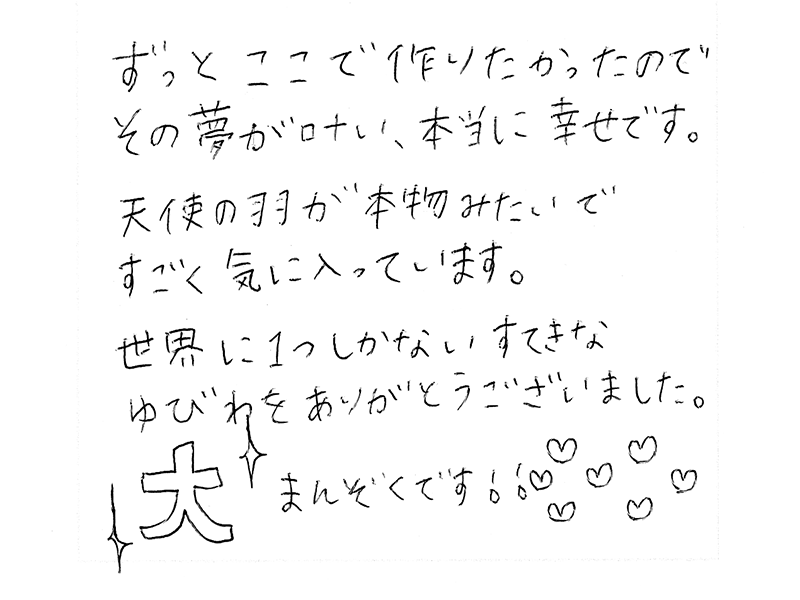 ずっとここで作りたかったので
その夢が叶い、本当に幸せです。
天使の羽が本物みたいで
すごく気に入っています。
世界に1つしかないすてきな
ゆびわをありがとうございました。
大まんぞくです!!